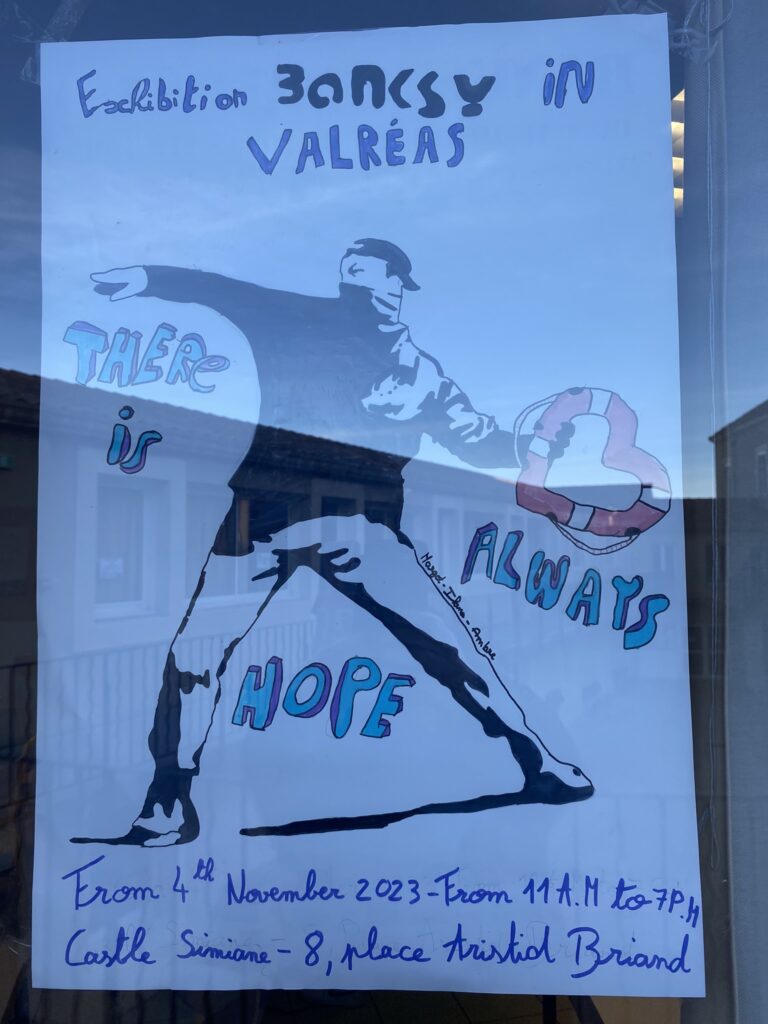 Exhibition Banksy in
VALRÉAS
THERE
is
ALWAYS
HOPE
From 4th November 2023 - From 11 A.M to 7P.M
Castle Simiane - 8, place Aristid Briand